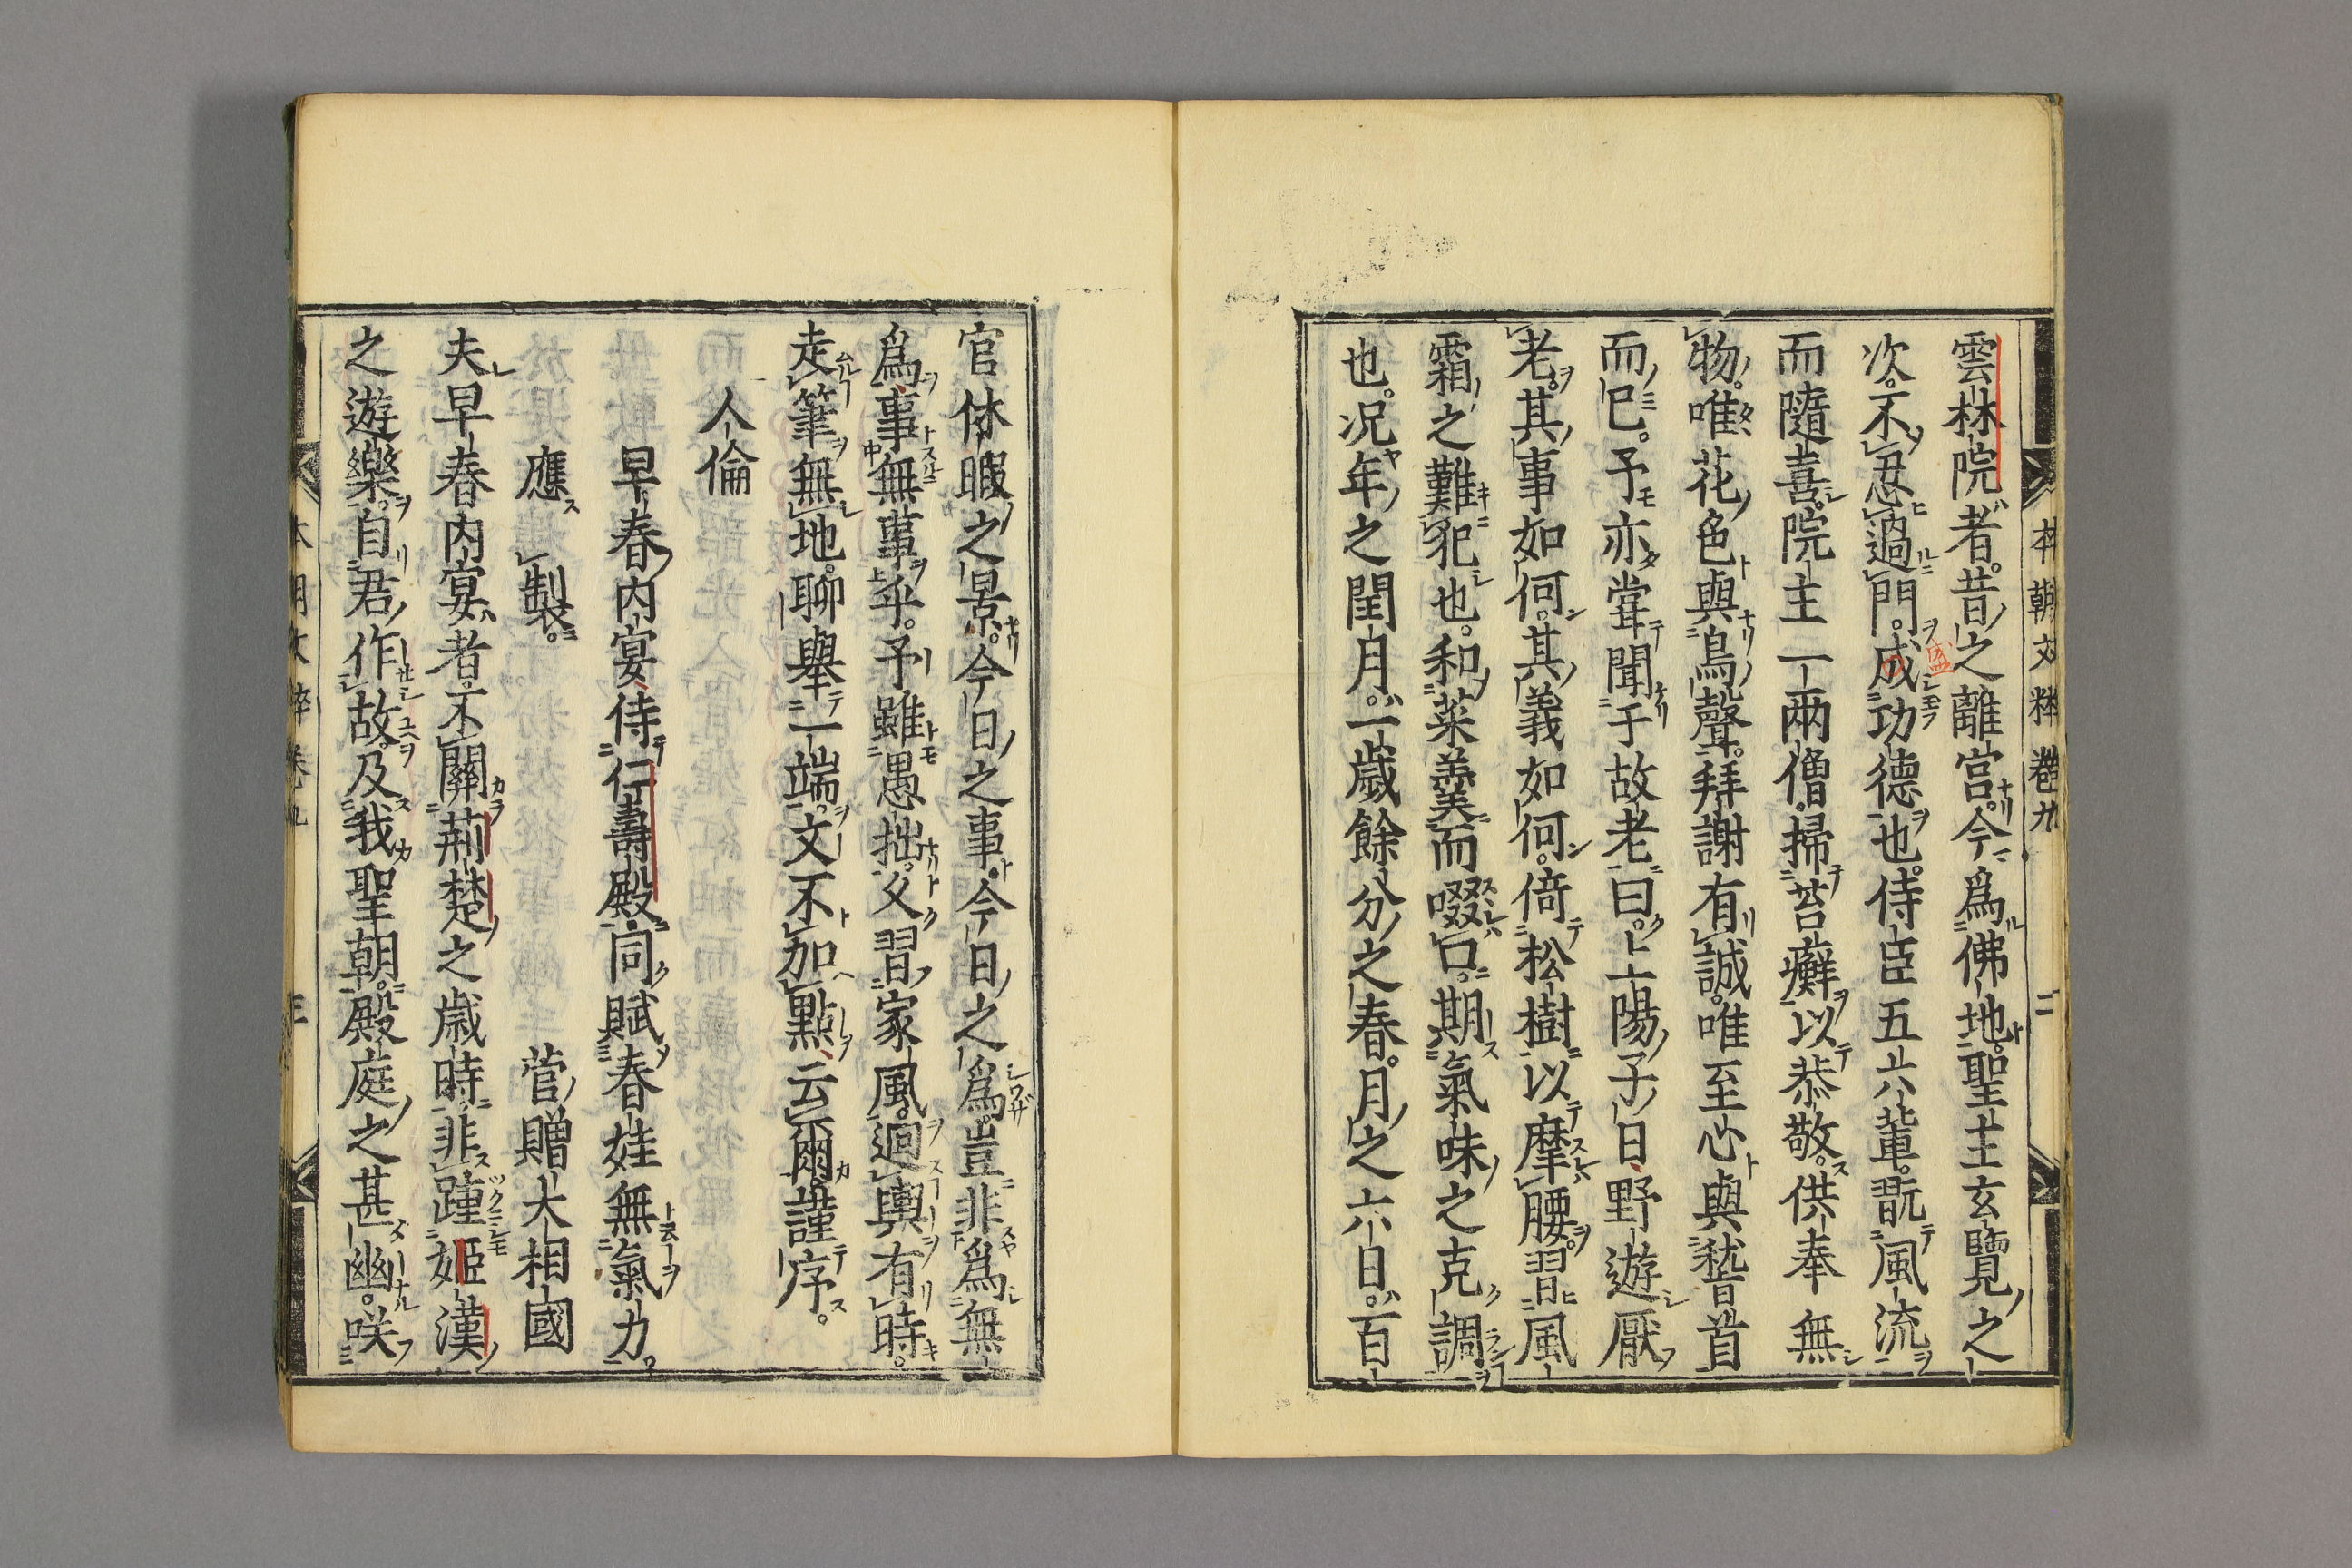 本朝文粹卷九 二
雲林院者。昔之離宮。今爲佛地。聖主玄覽之
次。不忍過門。成功德也。侍臣五六輩。翫風流
盛
而隨喜。院主一兩僧。掃苔癬以恭敬。供奉無
物。唯花色與鳥聲。拜謝有誠。唯至心與嵆首
而已。予亦嘗聞于故老曰。上陽子日。野遊厭
老。其事如何。其義如何。倚松樹以摩腰。習風
霜之難犯也。和菜羹而啜口。期氣味之克調
也。况年之閏月。一歲餘分之春。月之六日。百
官休暇之景。今日之事。今日之爲。豈非爲無
爲。事無事乎。予雖愚拙。久習家風。廻輿有時。
走筆無地。聊舉一端。文不加點。云爾。謹序。
人倫
早春内宴侍仁壽殿同賦春娃無氣力。
應製。 菅贈大相國
夫早春内宴者。不關荊楚之歲時。非踵姬漢
之遊樂。自君作故。及我聖朝。殿庭之甚幽。咲
本朝文粹卷九 三